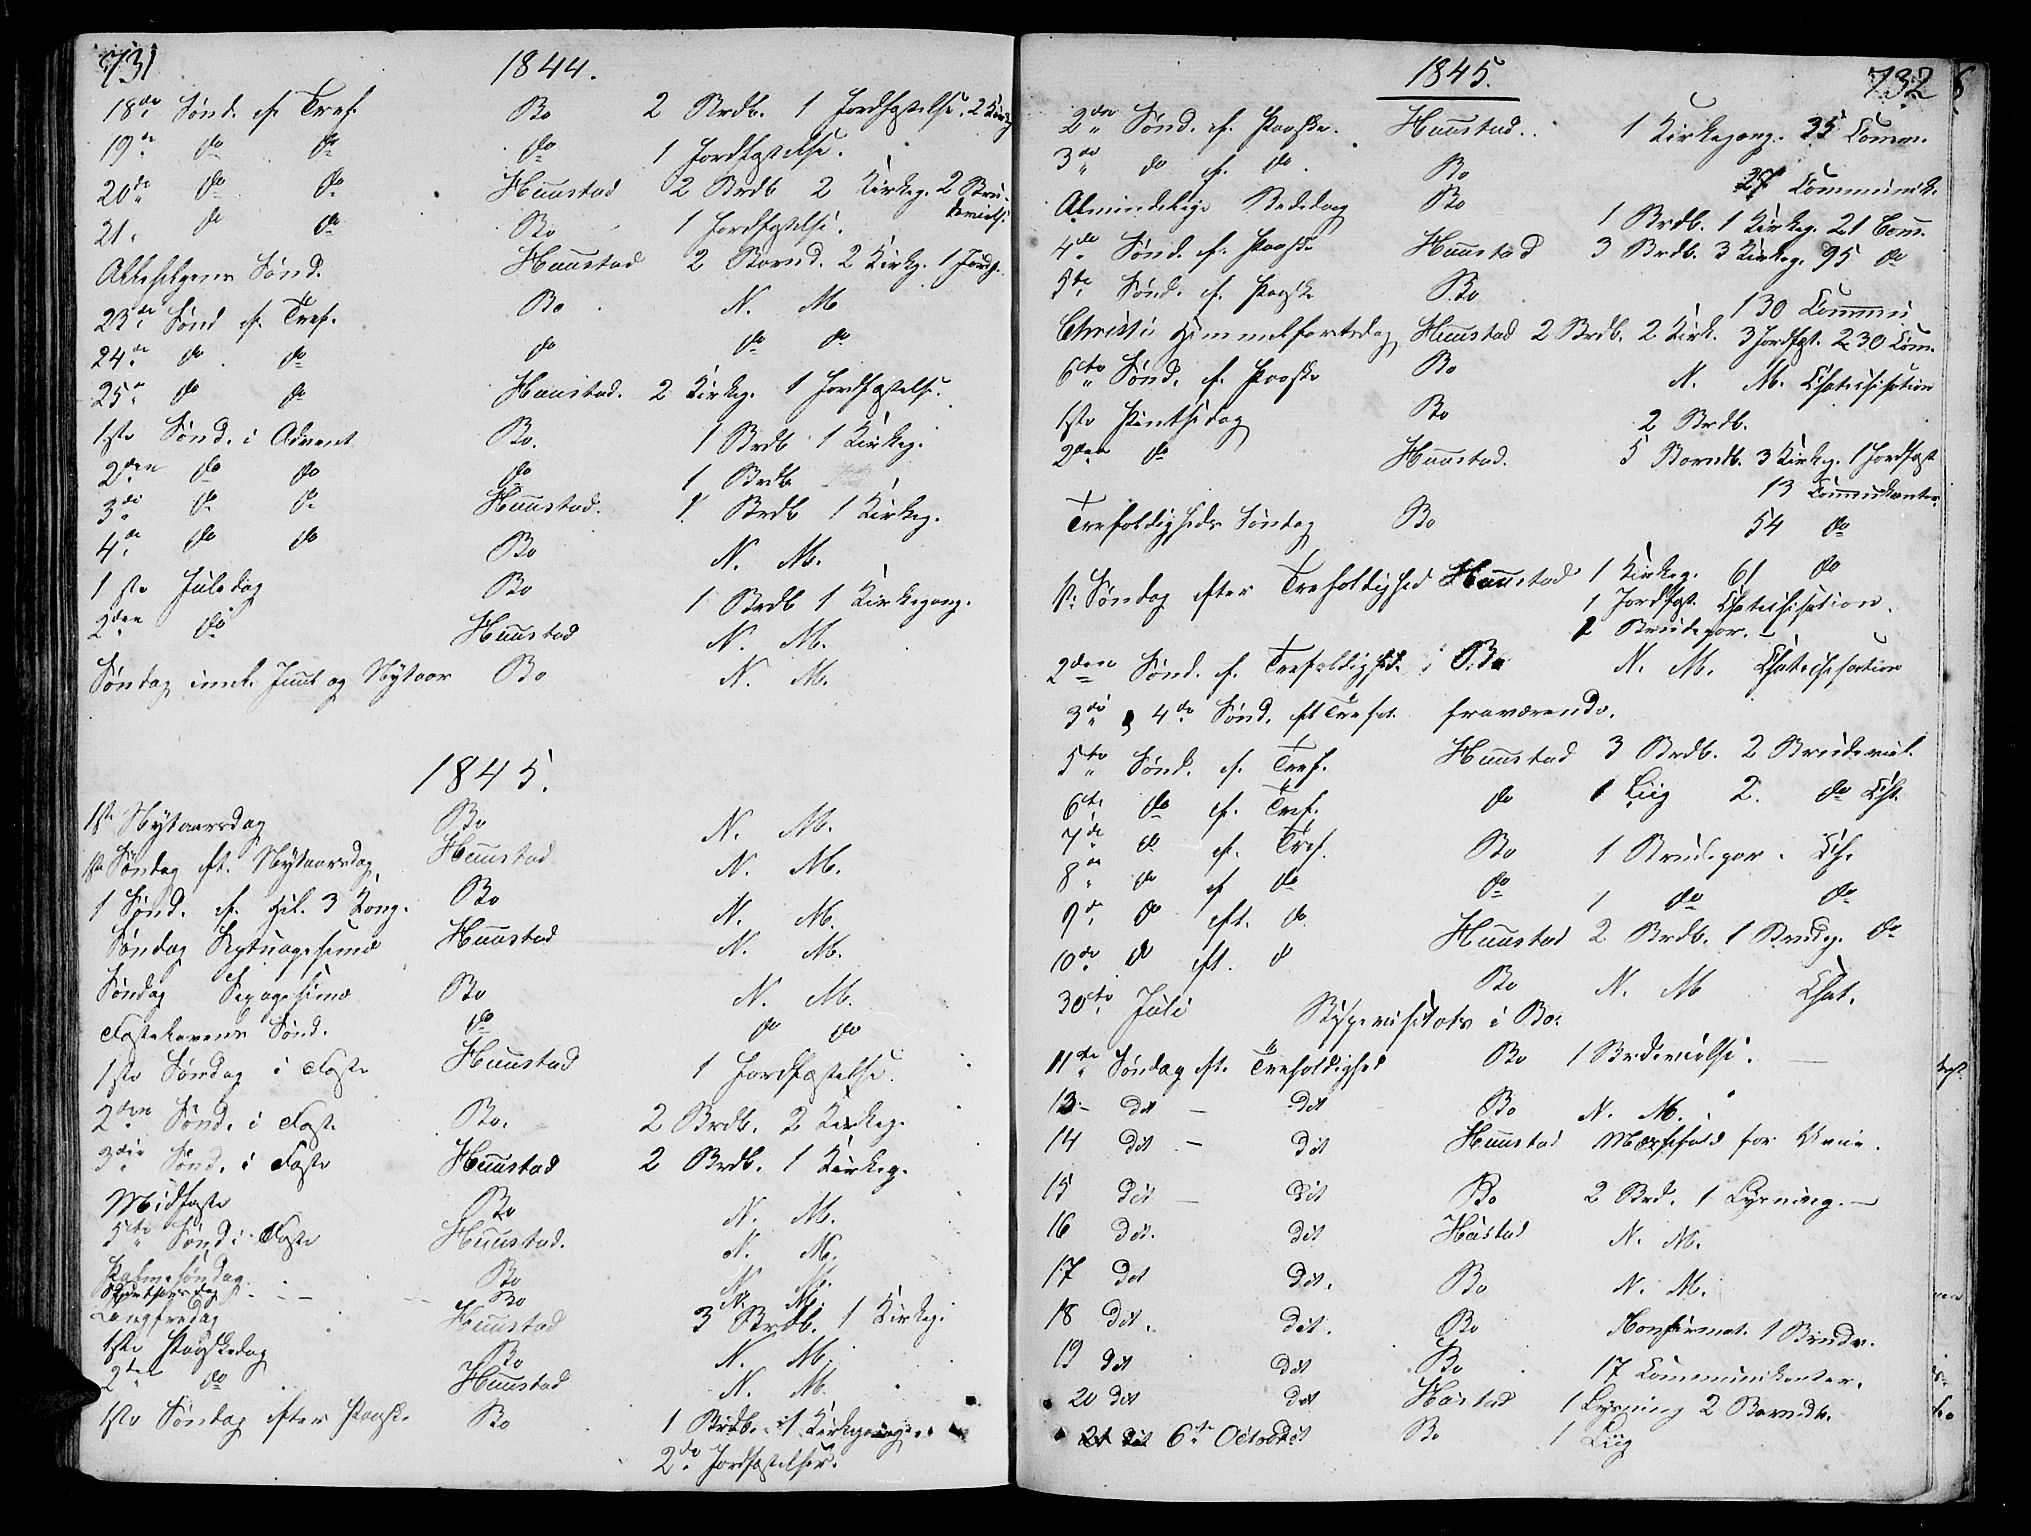 731
1844.
18de Sønd. ef. Tref. Bo 2 Brdb. 1 Jordfæstelse. 2 Kirkg
19de do do do 1 Jordfæstelse.
20de do do Huustad 2 Brdb 2 Kirkeg. 2 Bru-
devielse
21. do do Bo 1 Jordfæstelse.
Allehelgens Sønd. Huustad 2 Barnd. 2 Kirkg. 1 Jordf.
23de Sønd ef. Tref. Bo N. M
24de do do do do do
25de do do Huustad. 2 Kirkeg. 1 Jordfæstelse.
1ste Sønd. i Advent Bo. 1 Brdb 1 Kirkeg.
2den do do do 1 Brdb
3die do do Huustad. 1. Brdb 1 Kirkeg.
4de do do Bo N. M.
1ste Juledag Bo 1 Brdb 1 Kirkegang.
2den do Huustad N. M.
Søndag imel. Juul og Nytaar Bo N. M.
1845.
1ste Nytaarsdag Bo N. M.
1ste Søndag eft. Nytaarsdag Huustad N. M.
1 Sønd. ef. Hel. 3 Kong. Bo N. M.
Søndag Septuagesimæ Huustad N. M.
Søndag Sexagesimæ Bo N. M.
Fastelavens Sønd. do do do
1ste Søndag i Faste Huustad 1 Jordfæstelse.
2den Sønd. i Faste Bo. 2 Brdb. 2 Kirkeg.
3die Sønd. i Faste Huustad 2 Brdb. 1 Kirkeg.
Midfaste Bo N. M.
5te Sønd i Faste Huustad. N. M.
Palmesøndag Bo N. M.
Skjertorsdag Bo N. M.
Langfredag Huustad 3 Brdb. 1 Kirkeg.
1ste Paaskedag Bo N. M.
2den do Huustad N. M.
1ste Søndag efter Paaske Bo 1 Brdb. 1 Kirkegang.
2de Jordfæstelser.
1845.
732
2den Sønd. ef. Paaske. Huustad. 1 Kirkegang. 35 Comm.
3die do ef. do Bo 27 Communik.
Almindelige Bededag Bo 1 Brdb. 1 Kirkeg. 21 Com.
4de Sønd. ef. Paaske Huustad 3 Brdb. 3 Kirkeg. 95 do
5te Sønd. ef. Paaske Bo 130 Commu
Christi Himmelfartsdag Huustad 2 Brdb. 2 Kirk. 3 Jordfæst. 230 Com.
6te Sønd. ef. Paaske Bo N. M. Chatechisation
1ste Pintsedag Bo 2 Brdb.
2den do Huustad. 5 Barndb. 3 Kirkeg. 1 Jordfæst
13 Communikanter.
Trefoldigheds Søndag Bo 54 do
1ste Søndag efter Trefoldighed Huustad 1 Kirkeg. 61 do
1 Jordfæst. Chatechisation.
2 Brudepar.
2den Sønd. ef. Trefoldighed. Bo N. M. Chatechisation
3die & 4de Sønd. eft Trefol. fraværende.
5te Sønd. ef. Tref. Huustad 3 Brdb. 2 Brudeviel.
6te do ef. Tref. do 1 Liig 2. do Cht.
7de do ef. Tref. Bo 1 Brudepar. Ch.
8de do ef do do 1 do do
9de do eft. do Huustad 2 Brdb. 1 Brudep. do
10de do eft. d Bo N. M Chat.
30te Juli Bispevisitats i Bo.
11te Søndag eft. Trefoldighed Bo 1 Brdevielse.
13 dit dit Bo N. M.
14 dit dit Huustad Messefald for Veir.
15 dit dit Bo 2 Brd. 1 Lysning.
16 dit. dit Hustad N. M.
17 dit dit. Bo N. M.
18 dit. dit. Bo Konfirmat. 1 Brudv.
19 dit dit Bo 17 Communikanter.
20 dit dit Hustad 1 Lysning 2 Barndb.
21 dit 6te Octob dit Bo 1 Liig